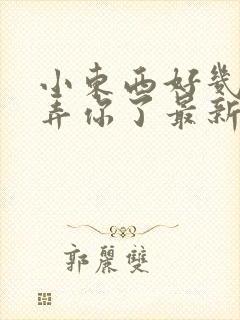 小東西好幾
弄你了最新
郭麗雙